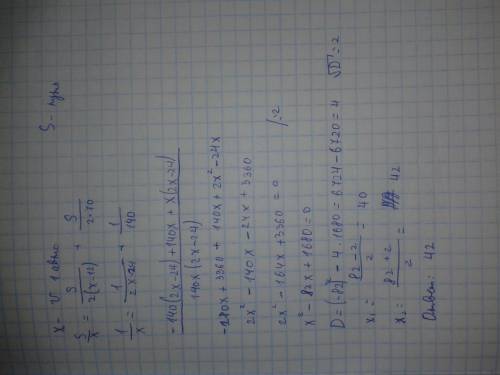 x - V 1 авто S - путь
S/x = S/2(x-12) + S/2·70
1/x = 1/2x-24 + 1/140
-140(2x-24)+140x + x(2x-24)
140x(2x-24)
-280x + 3360 + 140x + 2x² - 24x
2x² - 140x - 24x + 3360
2x² - 164x + 3360 = 0 /:2
x² - 82x + 1680 = 0
D = (-82)² - 4·1680 = 6724 - 6720 = 4 √D = 2
x₁ = 82-2/2 = 40
x₂ = 82+2/2 = 42
Ответ: 42